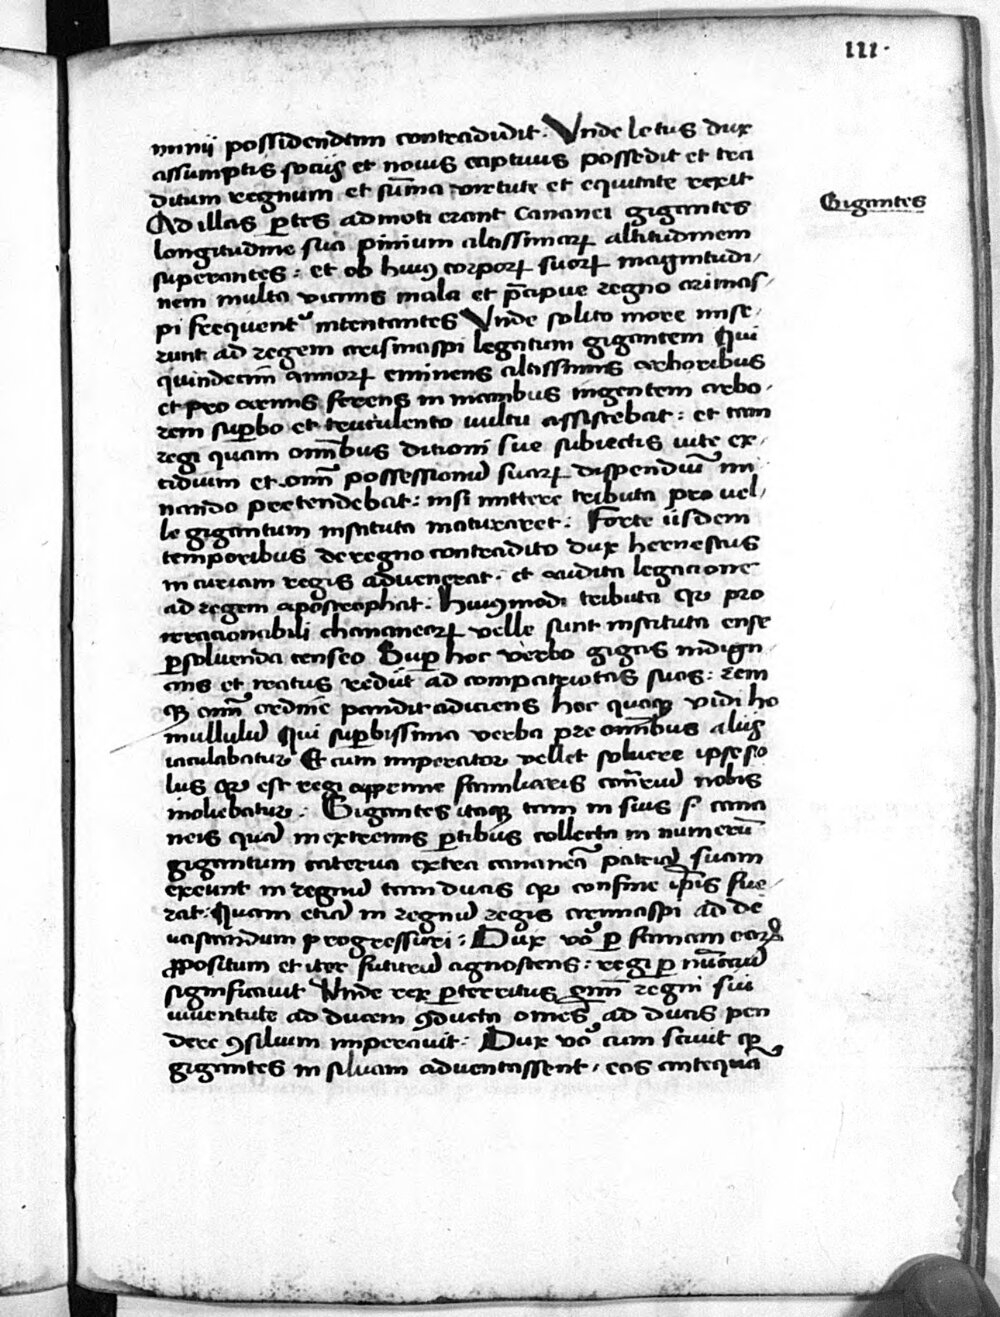 111·
minij possidendam contradidit· Vnde letus dux
assumptis socijs et nouis captiuis possedit et tra
ditum regnum et sūma virtute et equitate rexit
Ad illas ꝑtes admoti erant cananei gigantes
Gigantes
longitudine sua pinium altissimaꝝ altitudinem
superantes : et ob huiꝰ corporꝝ suorꝝ magnitudi/
nem multa vicinis mala et p̄cipue regno arimas/
pi frequent᷑ intentantes Vnde solito more mise/
runt ad regem arismaspi legatum gigantem Qui
quindecim annorꝝ eminens altissimis arboribus
et pro armis ferens in manibus ingentem arbo/
rem suꝑbo et truculento uultu assistebat : et tam
regi quam om̄ibus ditioni sue subiectis uite ex/
cidium et om̄ possessionū suarꝝ dispendiū mi
nando pretendebat : nisi mittere tributa pro uel/
le gigantum instituta maturaret : Forte iisdem
temporibus de regno contradito dux hernestus
in curiam regis aduenerat · et audita legacione
ad regem apostrophat : Huiꝰmodi tributa que pro
irracionabili chananeorꝝ velle sunt instituta ense
ꝑsoluenda censeo Suꝑ hoc verbo gigas indign
ans et iratus rediit ad compatriotas suos : rem
qꝫ om̄ ordine pandit adiciens hoc quoqꝫ vidi ho
mullulū Qui suꝑbissima verba pre om̄ibus alijs
iaculabatur Et cum imperator vellet soluere ipse so
lus que est regi apprime familiaris om̄iū nobis
moliebatur : Gigantes itaqꝫ tam in suis s· cana
neis quā in extremis ꝑtibus collecta in numerū
gigantum caterua extra cananeā patriā suam
exeunt in regnū tam ducis que confine ip̄is fue/
rat : Quam etiā in regnū regis arimaspi ad de
uastandum progressuri : Dux vō ꝑ famam eorꝝ
ꝓpositum et iter futurū agnoscens : regi ꝑ nūciū
significauit Vnde rex ꝑterritus om̄ regni sui
iuuentute ad ducem ꝯducta om̄es ad ducis pen
dere ꝯsilium imperauit : Dux vō cum sciuit qꝫ
gigantes in siluam aduentassent / eos antequā